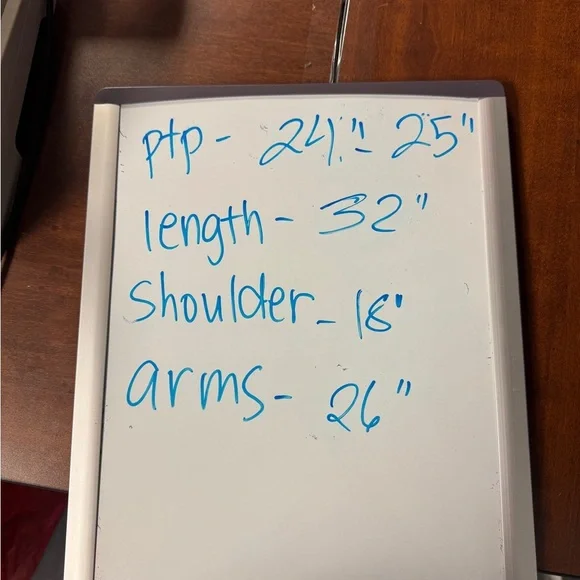 ptp - 24"- 25"
length - 32"
Shoulder - 18"
arms - 26"